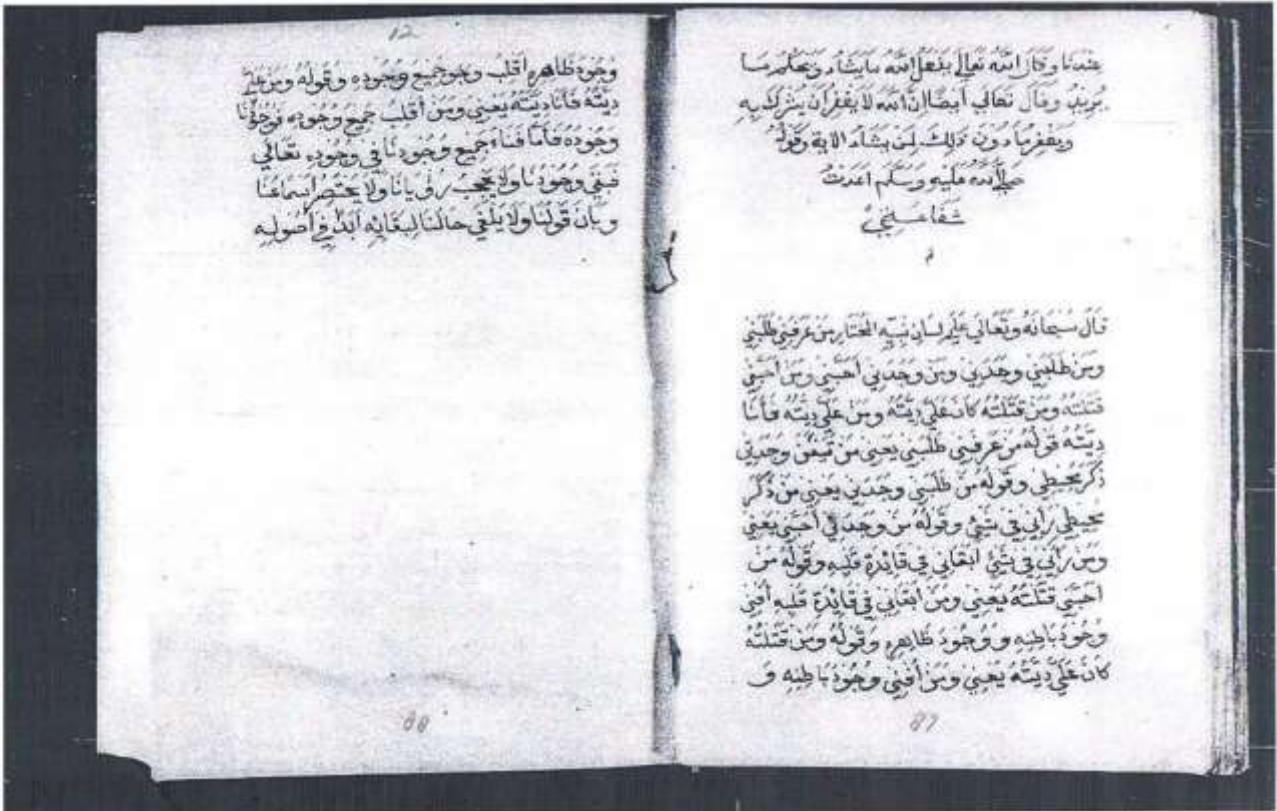 عندنا وقال الله تعالى يفعل الله ما يشاء ويحكم ما
يريد وقال تعالى أيضا ان الله لا يغفر أن يشرك به
ويغفر ما دون ذلك لمن يشاء الاية وقوله
صلى الله عليه وسلم اعدت
شفاعتي
م
قَالَ سُبْحَانَهُ وَتَعَالَى عَلَى لسان نبيه المختار مَنْ عَرَفَنِي طَلَبَنِي
وَمَنْ طَلَبَنِي وَجَدَنِي وَمَنْ وَجَدَنِي أَحَبَّنِي وَمَنْ أَحَبَّنِي
قَتَلْتُهُ وَمَنْ قَتَلْتُهُ كَانَ عَلَيَّ دِيَّتُهُ وَمَنْ عَلَيَّ دِيَّتُهُ فَأَنَا
دِيَّتُهُ قَوْلُهُ مَنْ عَرَفَنِي طَلَبَنِي يَعْنِي مَنْ وَجَدَنِي
ذَكَرَ مُحِيطِي وَقَوْلُهُ مَنْ طَلَبَنِي وَجَدَنِي يَعْنِي مَنْ ذَكَرَ
مُحِيطِي رَأَنِي فِي شَيْئٍ وَقَوْلُهُ مَنْ وَجَدَنِي أَحَبَّنِي يَعْنِي
وَمَنْ رَأَنِي فِي شَيْئٍ ابْقَانِي فِي فَائِدَةِ قَلْبِهِ وَقَوْلُهُ مَنْ
أَحَبَّنِي قَتَلْتُهُ يَعْنِي وَمَنْ ابْقَانِي فِي فَائِدَةِ قَلْبِهِ أُفْنِيَ
وُجُوْدُ بَاطِنِهِ وَوُجُودُ ظَاهِرِهِ وَقَوْلُهُ وَمَنْ قَتَلْتُهُ
كَانَ عَلَيَّ دِيَّتُهُ يَعْنِي وَمَنْ أُفْنِيَ وُجُوْدُ بَاطِنِهِ وَ
87
12
وُجُوْدَ ظَاهِرِهِ أقلب وجو جَمِيعُ وُجُوْدِهِ وَقَوْلُهُ وَمَنْ عَلَيَّ
دِيَّتُهُ فَأَنَا دِيَّتُهُ يَعْنِي وَمَنْ أقلب جَمِيعَ وُجُوْدِهِ
وُجُوْدَهُ فَأَمَّا فَنَاءُ جَمِيعِ وُجُوْدِنَا فِي وُجُوْدِهِ تَعَالَى
فَبَقِيَ وُجُوْدُنَا وَلَا يَحْجُبُ وَلَا
وَبَانَ قَوْلُنَا وَلَا حَالَنَا لِبَقَائِهِ أَبَدًا فِي أُصُولِهِ
88